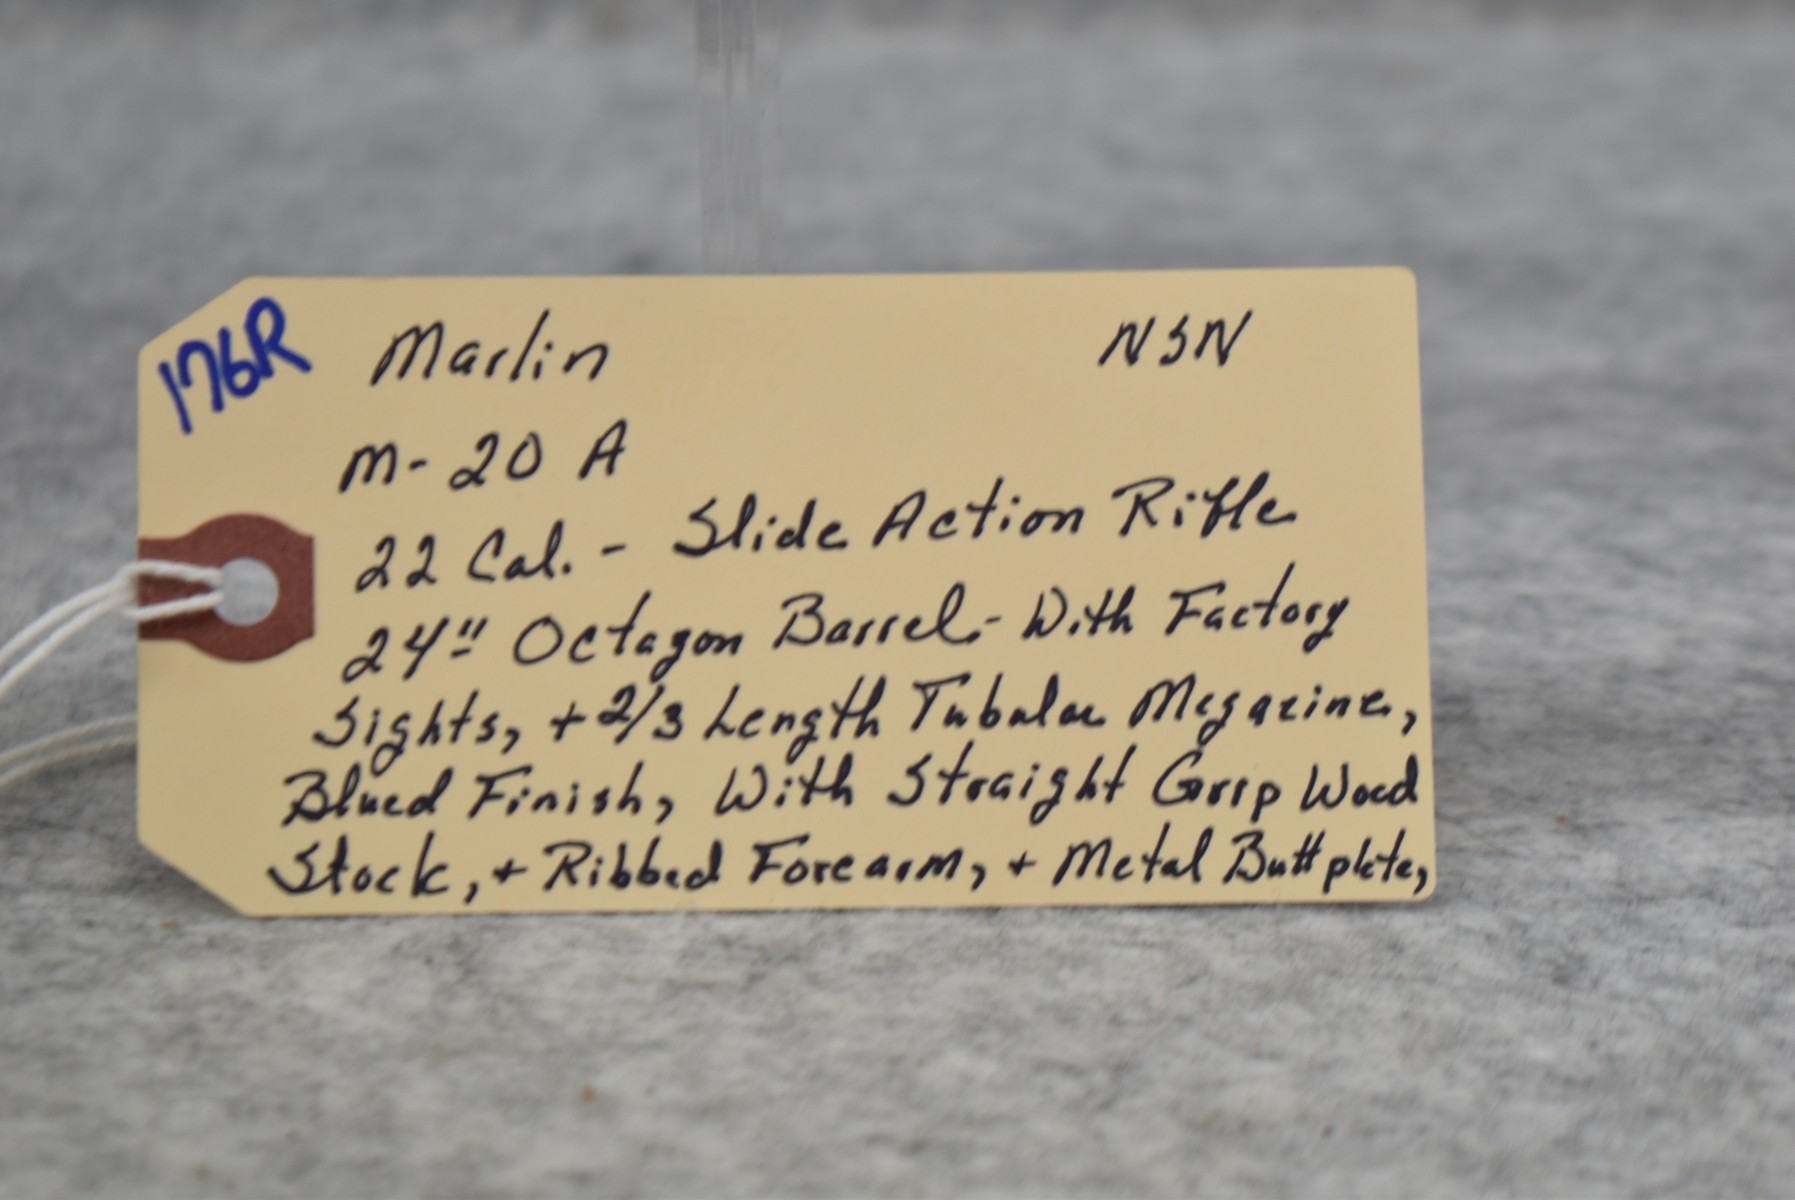 176R
Marlin NSN
M-20 A
22 Cal. - Slide Action Rifle
24" Octagon Barrel - With Factory
Sights, + 2/3 Length Tubular Magazine,
Blued Finish, With Straight Grip Wood
Stock, + Ribbed Forearm, + Metal Buttplate,